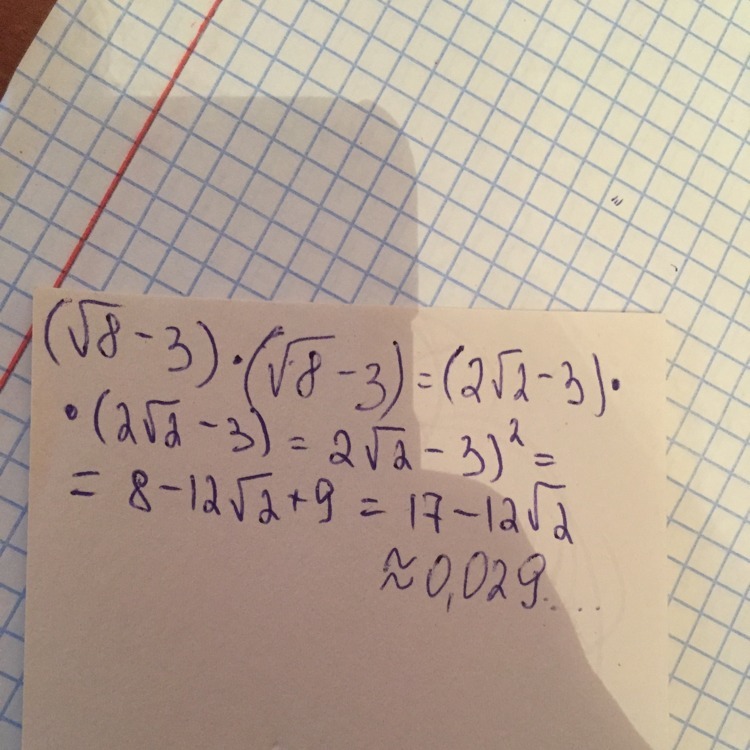 (√8 - 3) · (√8 - 3) = (2√2 - 3) ·
· (2√2 - 3) = 2√2 - 3)² =
= 8 - 12√2 + 9 = 17 - 12√2
≈ 0,029....